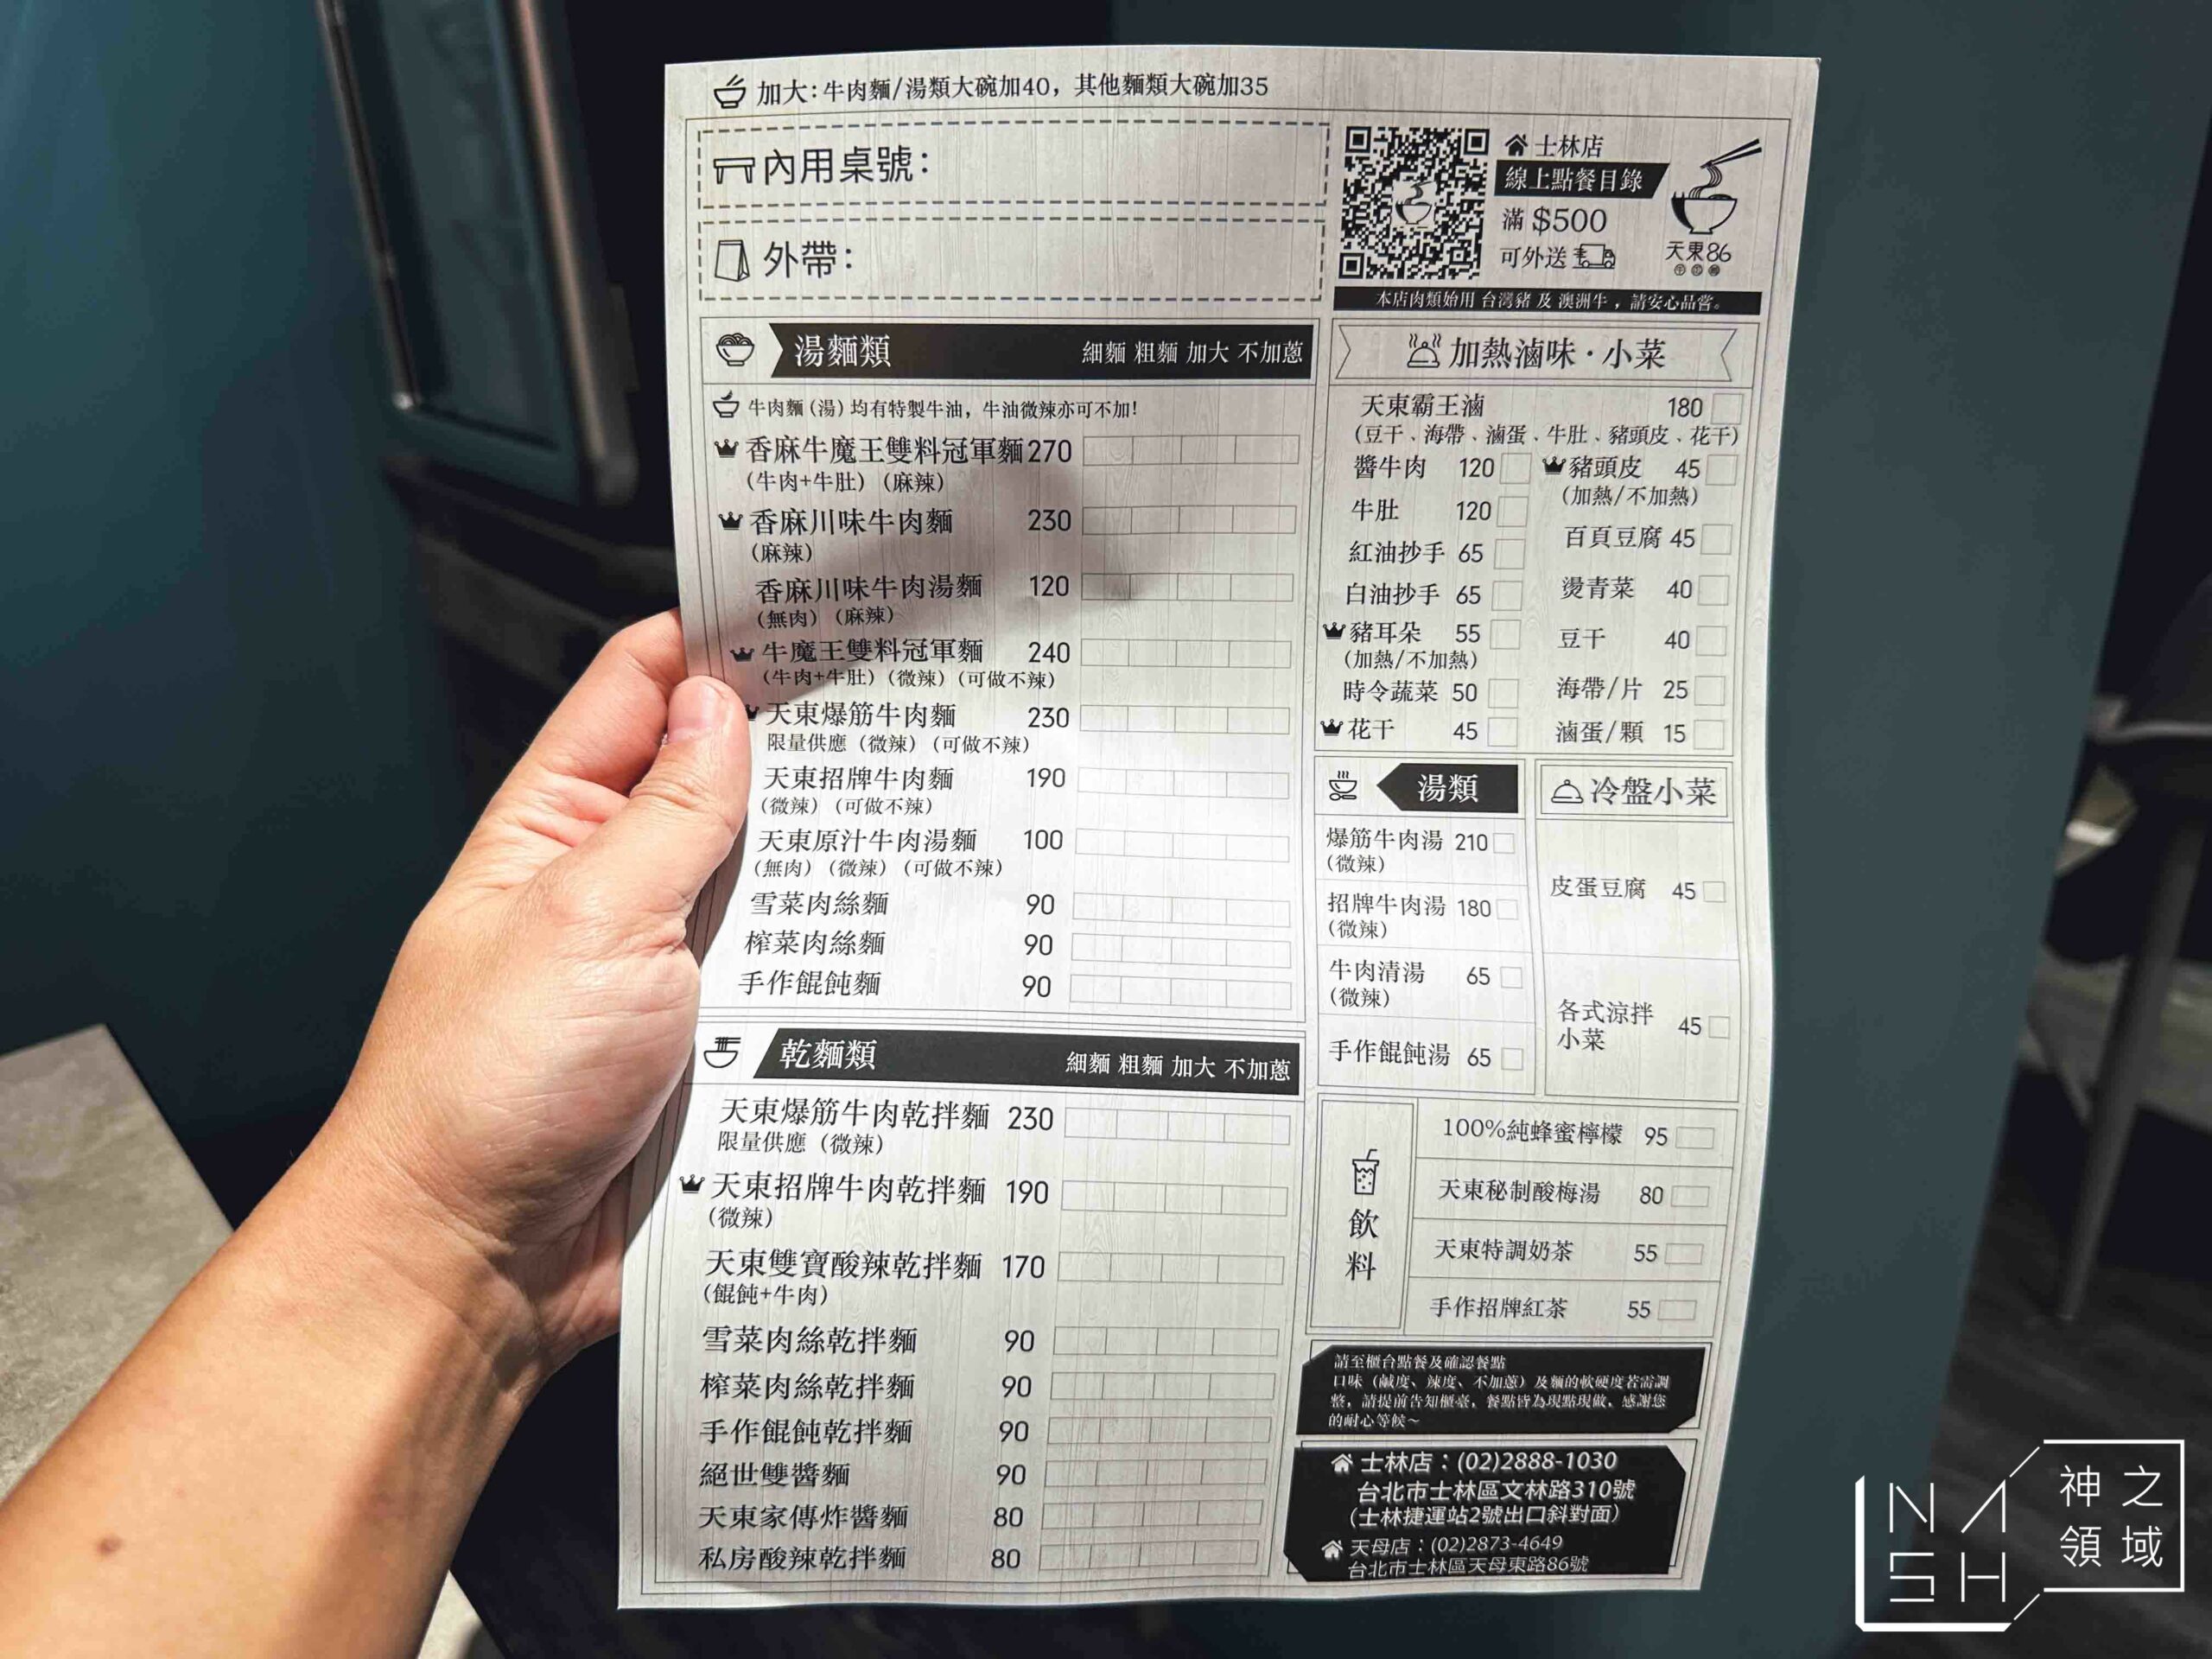 加大：牛肉麵/湯類大碗加40，其他麵類大碗加35
內用桌號：
外帶：
士林店
線上點餐目錄
滿 $500
可外送
天東86
牛肉麵
本店肉類始用 台灣豬 及 澳洲牛，請安心品嘗。
湯麵類 細麵 粗麵 加大 不加蔥
牛肉麵（湯）均有特製牛油，牛油微辣亦可不加！
香麻牛魔王雙料冠軍麵 270
（牛肉+牛肚）（麻辣）
香麻川味牛肉麵 230
（麻辣）
香麻川味牛肉湯麵 120
（無肉）（麻辣）
牛魔王雙料冠軍麵 240
（牛肉+牛肚）（微辣）（可做不辣）
天東爆筋牛肉麵 230
限量供應（微辣）（可做不辣）
天東招牌牛肉麵 190
（微辣）（可做不辣）
天東原汁牛肉湯麵 100
（無肉）（微辣）（可做不辣）
雪菜肉絲麵 90
榨菜肉絲麵 90
手作餛飩麵 90
乾麵類 細麵 粗麵 加大 不加蔥
天東爆筋牛肉乾拌麵 230
限量供應（微辣）
天東招牌牛肉乾拌麵 190
（微辣）
天東雙寶酸辣乾拌麵 170
（餛飩+牛肉）
雪菜肉絲乾拌麵 90
榨菜肉絲乾拌麵 90
手作餛飩乾拌麵 90
絕世雙醬麵 90
天東家傳炸醬麵 80
私房酸辣乾拌麵 80
加熱滷味·小菜
天東霸王滷 180
（豆干、海帶、滷蛋、牛肚、豬頭皮、花干）
醬牛肉 120
牛肚 120
紅油抄手 65
白油抄手 65
豬耳朵 55
（加熱/不加熱）
時令蔬菜 50
花干 45
豬頭皮 45
（加熱/不加熱）
百頁豆腐 45
燙青菜 40
豆干 40
海帶/片 25
滷蛋/顆 15
湯類
爆筋牛肉湯 210
（微辣）
招牌牛肉湯 180
（微辣）
牛肉清湯 65
（微辣）
手作餛飩湯 65
冷盤小菜
皮蛋豆腐 45
各式涼拌
小菜 45
飲料
100%純蜂蜜檸檬 95
天東秘制酸梅湯 80
天東特調奶茶 55
手作招牌紅茶 55
請至櫃台點餐及確認餐點
口味（鹹度、辣度、不加蔥）及麵的軟硬度若需調
整，請提前告知櫃臺，餐點皆為現點現做，感謝您
的耐心等候～
士林店：(02)2888-1030
台北市士林區文林路310號
（士林捷運站2號出口斜對面）
天母店：(02)2873-4649
台北市士林區天母東路86號
NASH
神之
領域